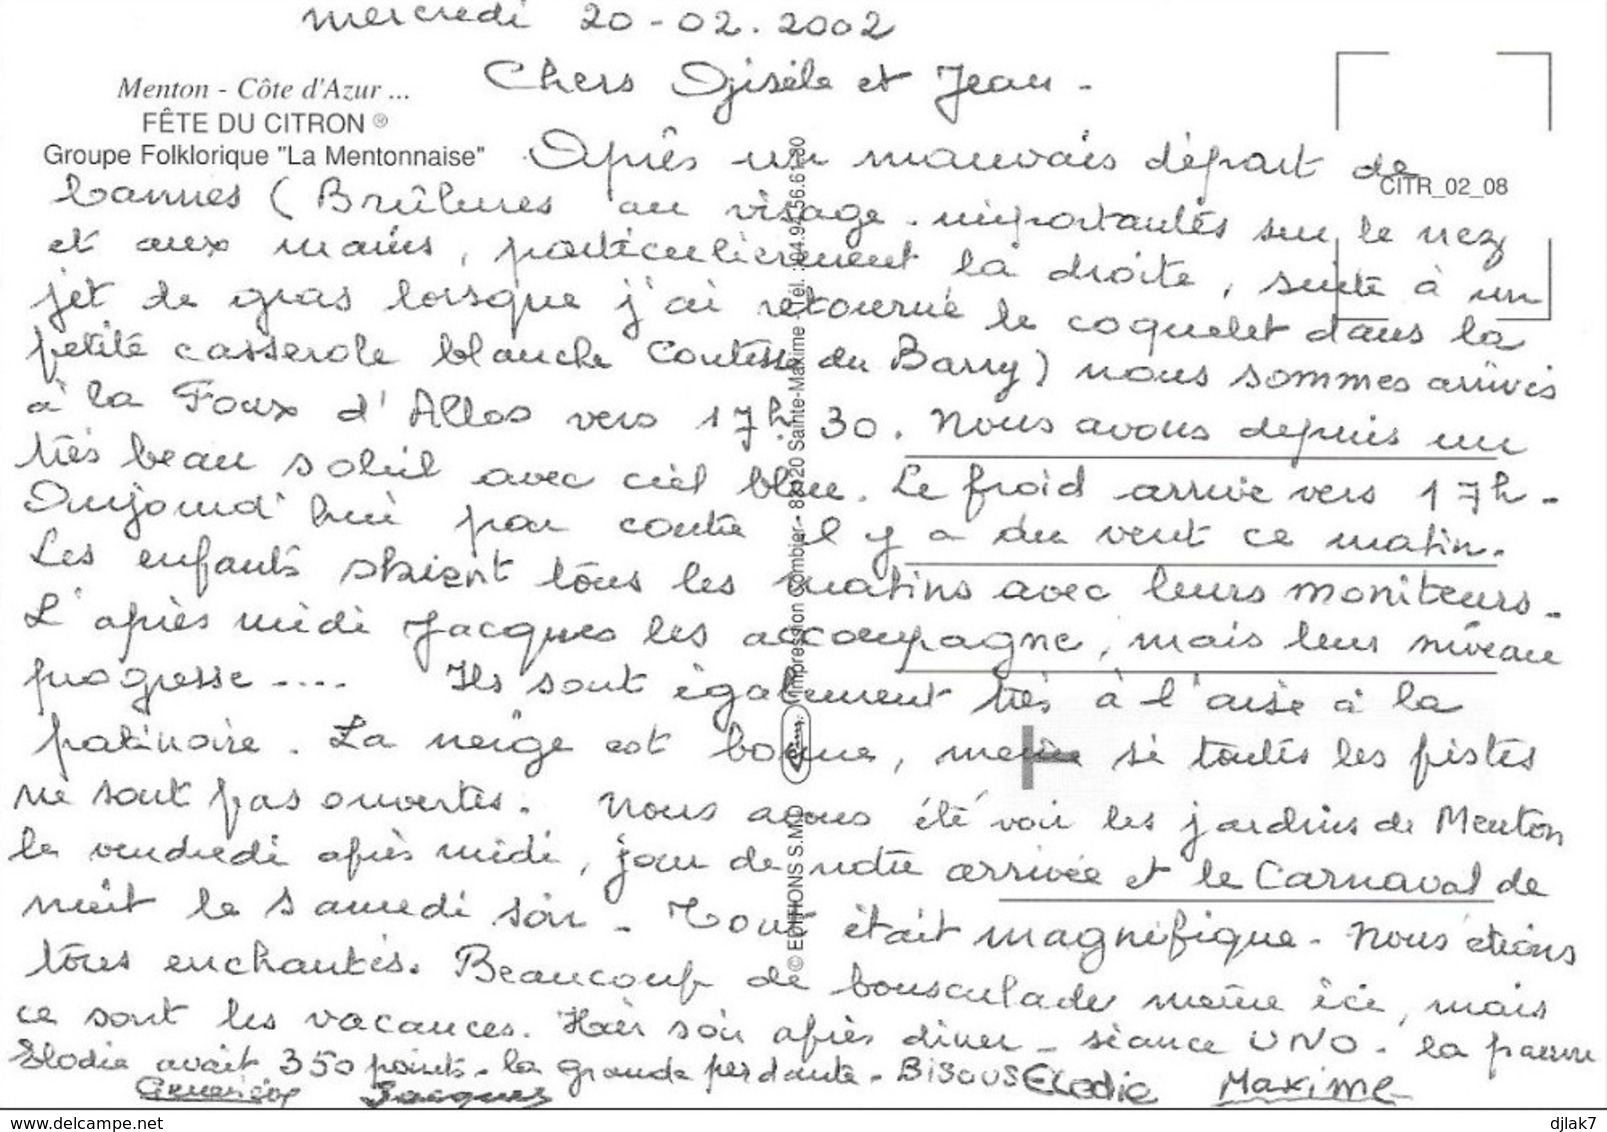 mercredi 20-02.2002
Menton - Côte d'Azur ...
FÊTE DU CITRON ®
Groupe Folklorique "La Mentonnaise"
CITR_02_08
Chers Gisèle et Jean -
Après un mauvais départ de
Cannes (Brûlures au visage - importantes sur le nez
et aux mains, particulièrement la droite, suite à un
jet de gras lorsque j'ai retourné le coquelet dans la
petite casserole blanche Comtesse du Barry) nous sommes arrivés
à la Foux d'Allos vers 17h 30. Nous avons depuis un
très beau soleil avec ciel bleu. Le froid arrive vers 17h -
Aujourd'hui par contre il y a du vent ce matin.
Les enfants skient tous les matins avec leurs moniteurs -
L'après midi Jacques les accompagne, mais leur niveau
progresse ---.. Ils sont également très à l'aise à la
patinoire. La neige est bonne, même si toutes les pistes
ne sont pas ouvertes. Nous avons été voir les jardins de Menton
le vendredi après midi, jour de notre arrivée et le Carnaval de
nuit le samedi soir - Tout était magnifique - Nous étions
tous enchantés. Beaucoup de bousculade même ici, mais
ce sont les vacances. Hier soir après diner - séance UNO - la pauvre
Elodie avait 350 points - la grande perdante - BISOUS Elodie Maxime
Geneviève Jacques
© EDITIONS S.M.D Impression Combier - 83120 Sainte-Maxime Tél. : 04.94.56.61.80
djlak7